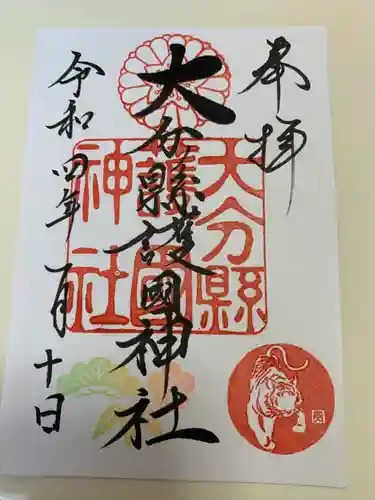 奉拝
大分縣護國神社
令和四年一月十日
大分縣
護國
神社
寅